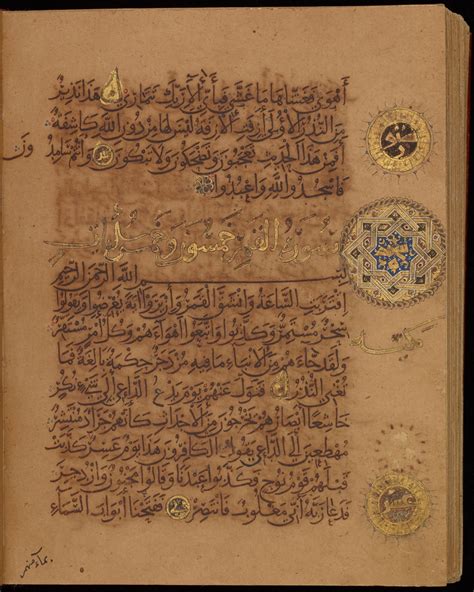 أَهْوَى فَغَشَّاهَا مَا غَشَّى فَبِأَيِّ آلَاءِ رَبِّكَ تَتَمَارَى هَذَا نَذِيرٌ
مِنَ النُّذُرِ الْأُولَى أَزِفَتِ الْآزِفَةُ لَيْسَ لَهَا مِنْ دُونِ اللَّهِ كَاشِفَةٌ
أَفَمِنْ هَذَا الْحَدِيثِ تَعْجَبُونَ وَتَضْحَكُونَ وَلَا تَبْكُونَ وَأَنْتُمْ سَامِدُونَ
فَاسْجُدُوا لِلَّهِ وَاعْبُدُوا
سورة القمر خمسون وخمس آيات
مكية
بِسْمِ اللَّهِ الرَّحْمَنِ الرَّحِيمِ
اقْتَرَبَتِ السَّاعَةُ وَانْشَقَّ الْقَمَرُ وَإِنْ يَرَوْا آيَةً يُعْرِضُوا وَيَقُولُوا
سِحْرٌ مُسْتَمِرٌّ وَكَذَّبُوا وَاتَّبَعُوا أَهْوَاءَهُمْ وَكُلُّ أَمْرٍ مُسْتَقِرٌّ
وَلَقَدْ جَاءَهُمْ مِنَ الْأَنْبَاءِ مَا فِيهِ مُزْدَجَرٌ حِكْمَةٌ بَالِغَةٌ فَمَا
تُغْنِ النُّذُرُ فَتَوَلَّ عَنْهُمْ يَوْمَ يَدْعُ الدَّاعِ إِلَى شَيْءٍ نُكُرٍ
خَاشِعًا أَبْصَارُهُمْ يَخْرُجُونَ مِنَ الْأَجْدَاثِ كَأَنَّهُمْ جَرَادٌ مُنْتَشِرٌ
مُهْطِعِينَ إِلَى الدَّاعِ يَقُولُ الْكَافِرُونَ هَذَا يَوْمٌ عَسِرٌ كَذَّبَتْ
قَبْلَهُمْ قَوْمُ نُوحٍ فَكَذَّبُوا عَبْدَنَا وَقَالُوا مَجْنُونٌ وَازْدُجِرَ
فَدَعَا رَبَّهُ أَنِّي مَغْلُوبٌ فَانْتَصِرْ فَفَتَحْنَا أَبْوَابَ السَّمَاءِ
عشر
بماء منهمر